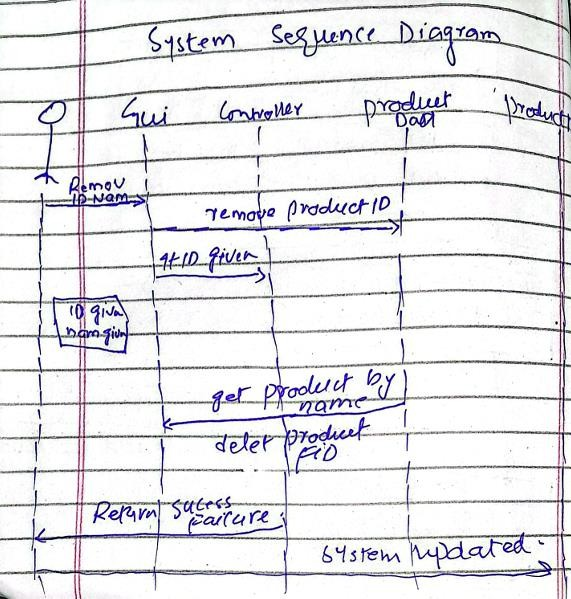 System Sequence Diagram
Gui Controller product product
Daat
Remov
ID Nam
remove product ID
If ID given
ID givn
nam givn
get product by
name
delet product
FID
Return sucess
Failure.
System updated.